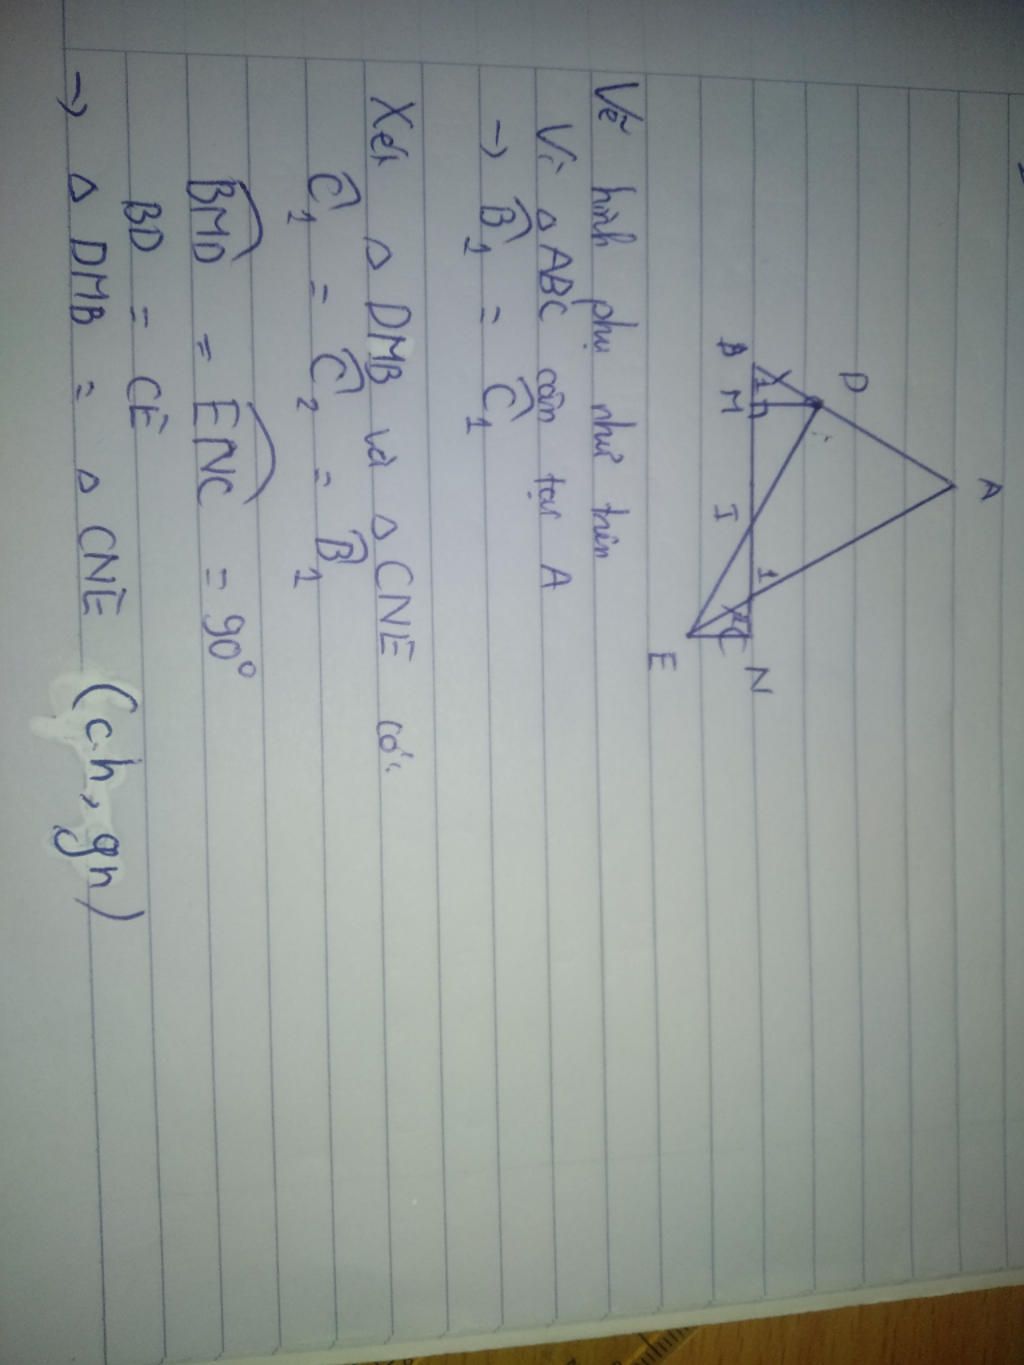 A
D
B
1
M
I
1
2
C
N
E
Vẽ hình phụ như trên
Vì △ABC cân tại A
→ B̂₁ = Ĉ₁
Xét △ DMB và △CNE có:
Ĉ₁ = Ĉ₂ = B̂₁
BMD = ENC = 90°
BD = CE
→ △ DMB = △ CNE (ch, gn)